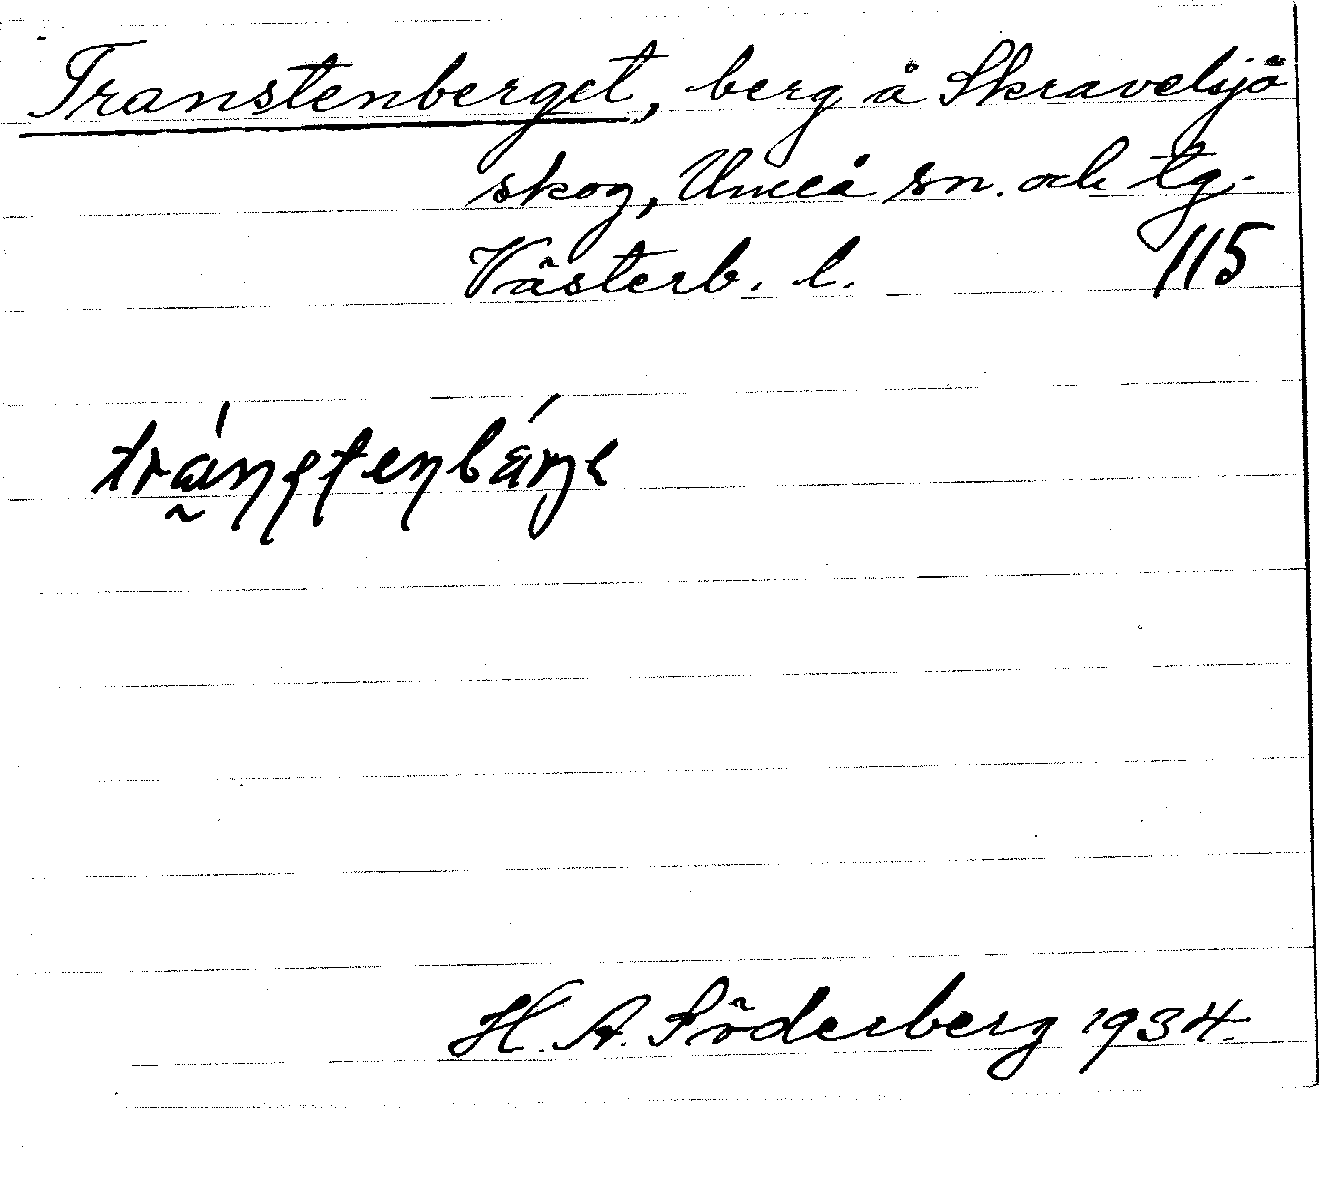 Transtenberget, berg å Skravelsjö
skog, Umeå sn. och tg.
Västerb. l. 115
H. A. Söderberg 1934.